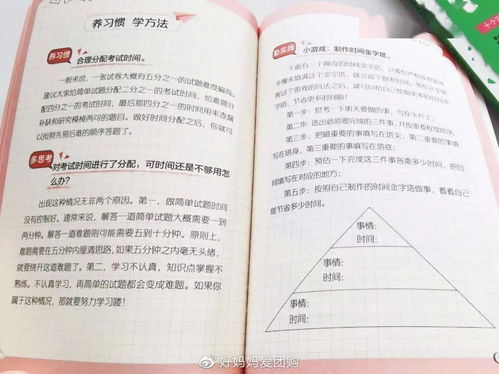 养习惯 学方法
养习惯
合理分配考试时间。
一般来说，一张试卷大概有五分之一的试题难度偏高。
建议大家给简单试题分配二分之一的考试时间，给难题分
配四分之一的考试时间，最后那四分之一的时间用来查漏
补缺和研究模棱两可的题目。做好时间分配之后，你就可
以按照先易后难的顺序答题了。
多思考
对考试时间进行了分配，可时间还是不够用怎
么办？
出现这种情况无非两个原因。第一，做简单试题时间
没有控制好。通常来说，解答一道简单试题大概需要一到
两分钟。解答一道难题则可能需要五到十分钟。原则上，
难题需要在五分钟内厘清思路，如果五分钟之内毫无头绪，
就要绕开这道难题了。第二，学习不认真，知识点掌握不
熟练。不认真学习，再简单的试题都会变成难题。如果你
属于这种情况，那就要努力学习喽！
勤实践
小游戏：制作时间金字塔。
下面有一个神奇的时间金字塔，
这个小游戏的玩法之后，就可以给自己
塔，节省更多时间啦！
第一步：思考一下明天要做的事，写在卡片上；
第二步：选出必须要完成的三件事，并按重要程度
第三步：把最重要的事情填写在塔尖，第二重要的事填
写在塔身，第三重要的事填写在塔底；
第四步：预估一下完成这三件事各需多少时间，把时
间填写在对应的地方；
第五步：按照自己制作的时间金字塔做事，看看自己
能节省多少时间。
事情：
时间：
事情：
时间：
事情：
时间：
@好妈妈爱团购